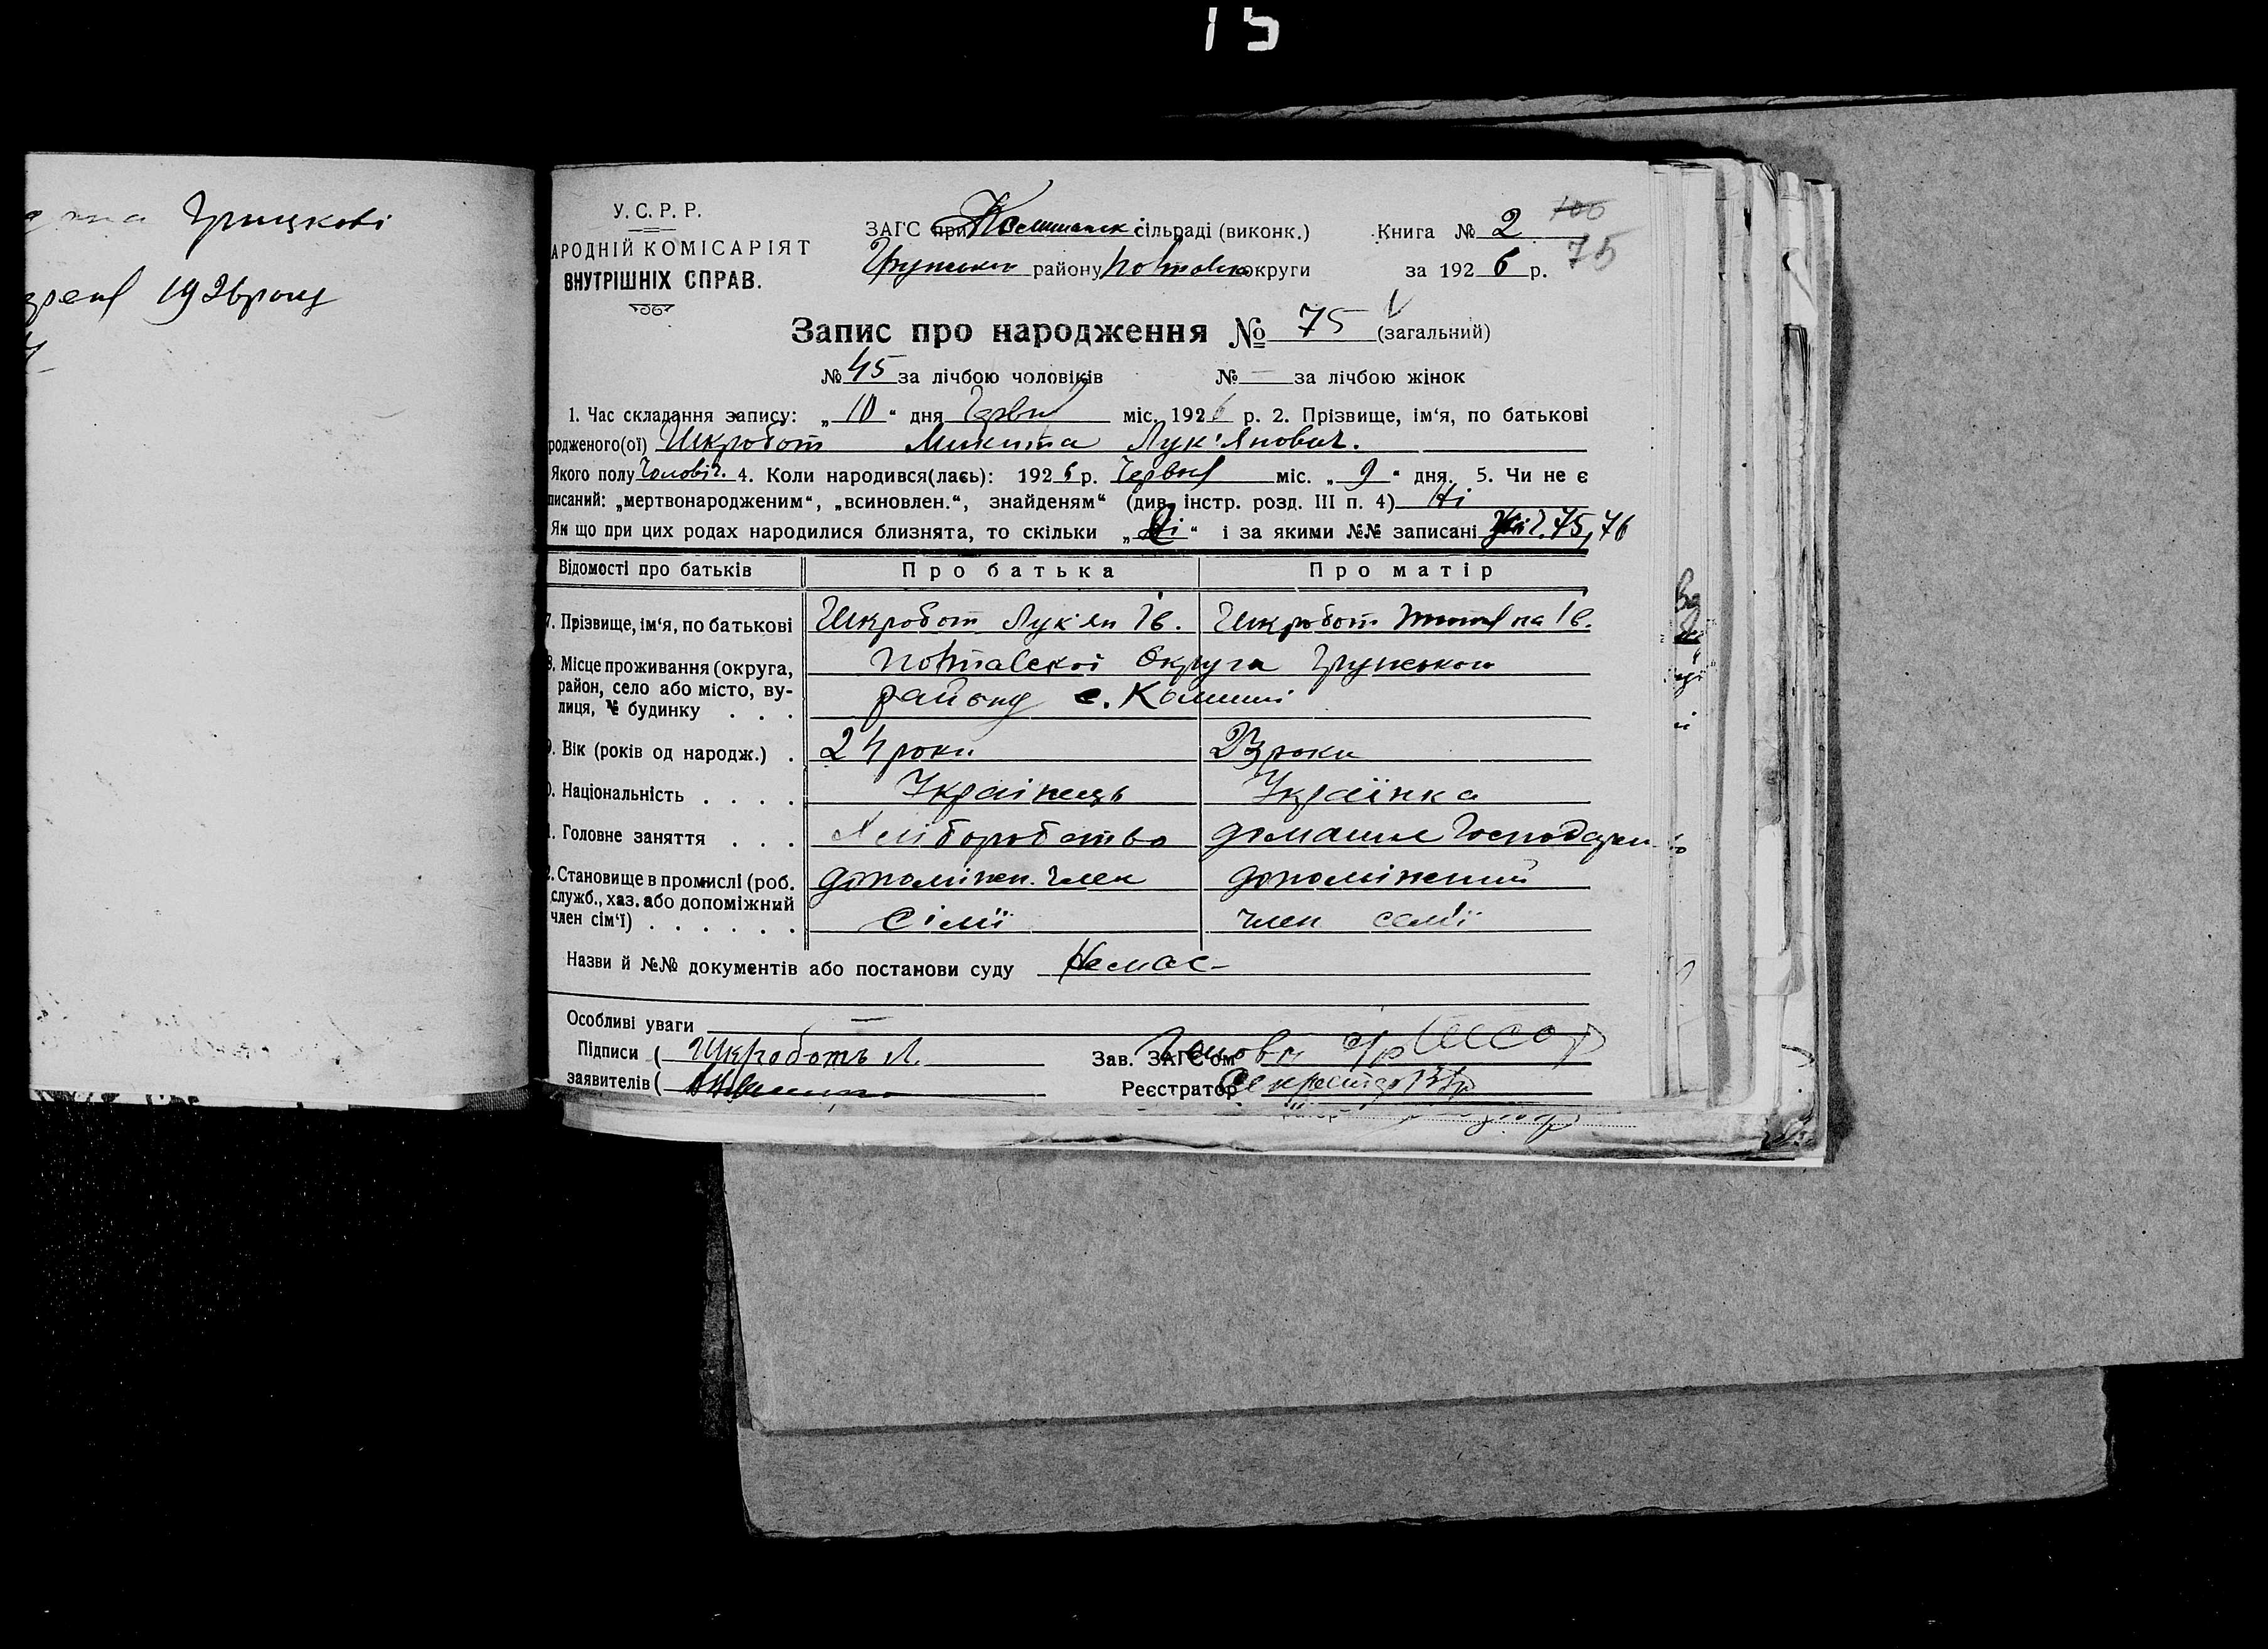 15
Грицькові
1926 року
У. С. Р. Р.
АРОДНІЙ КОМІСАРІЯТ
ВНУТРІШНІХ СПРАВ.
ЗАГС при сільраді (виконк.) Книга № 2 100
Грунського району Полтавськ округи за 1926 р. 75
Запис про народження № 75 (загальний)
№ 45 за лічбою чоловіків № — за лічбою жінок
1. Час складання запису: „10“ дня Червня міс. 1926 р. 2. Прізвище, ім‘я, по батькові
родженого(ої) Шкробот Микита Лук'янович.
Якого полу Чоловіч. 4. Коли народився(лась): 1926 р. Червня міс. „9“ дня. 5. Чи не є
писаний: „мертвонародженим“, „всиновлен.“, знайденям“ (див. інстр. розд. III п. 4) Ні
Як що при цих родах народилися близнята, то скільки „ “ і за якими №№ записані 75, 76
Відомості про батьків Про батька Про матір
7. Прізвище, ім‘я, по батькові Шкробот Лук'ян Ів. Шкробот Ів.
8. Місце проживання (округа, район, село або місто, вулиця, № будинку . . . Полтавської Округи Грунського
району с. Комиші
9. Вік (років од народж.) . 24 роки 23 роки
0. Національність . . . . Українець Українка
1. Головне заняття . . . Хліборобство домашнє Господарст
2. Становище в промислі (роб. служб., хаз. або допоміжний член сім‘ї) . . . . . . допоміжн. член допоміжний
сімї член семї
Назви й №№ документів або постанови суду Немає
Особливі уваги —
Підписи ( Шкроботь Л. Зав. ЗАГС‘ом Голова
заявителів ( Реєстратор Секретар